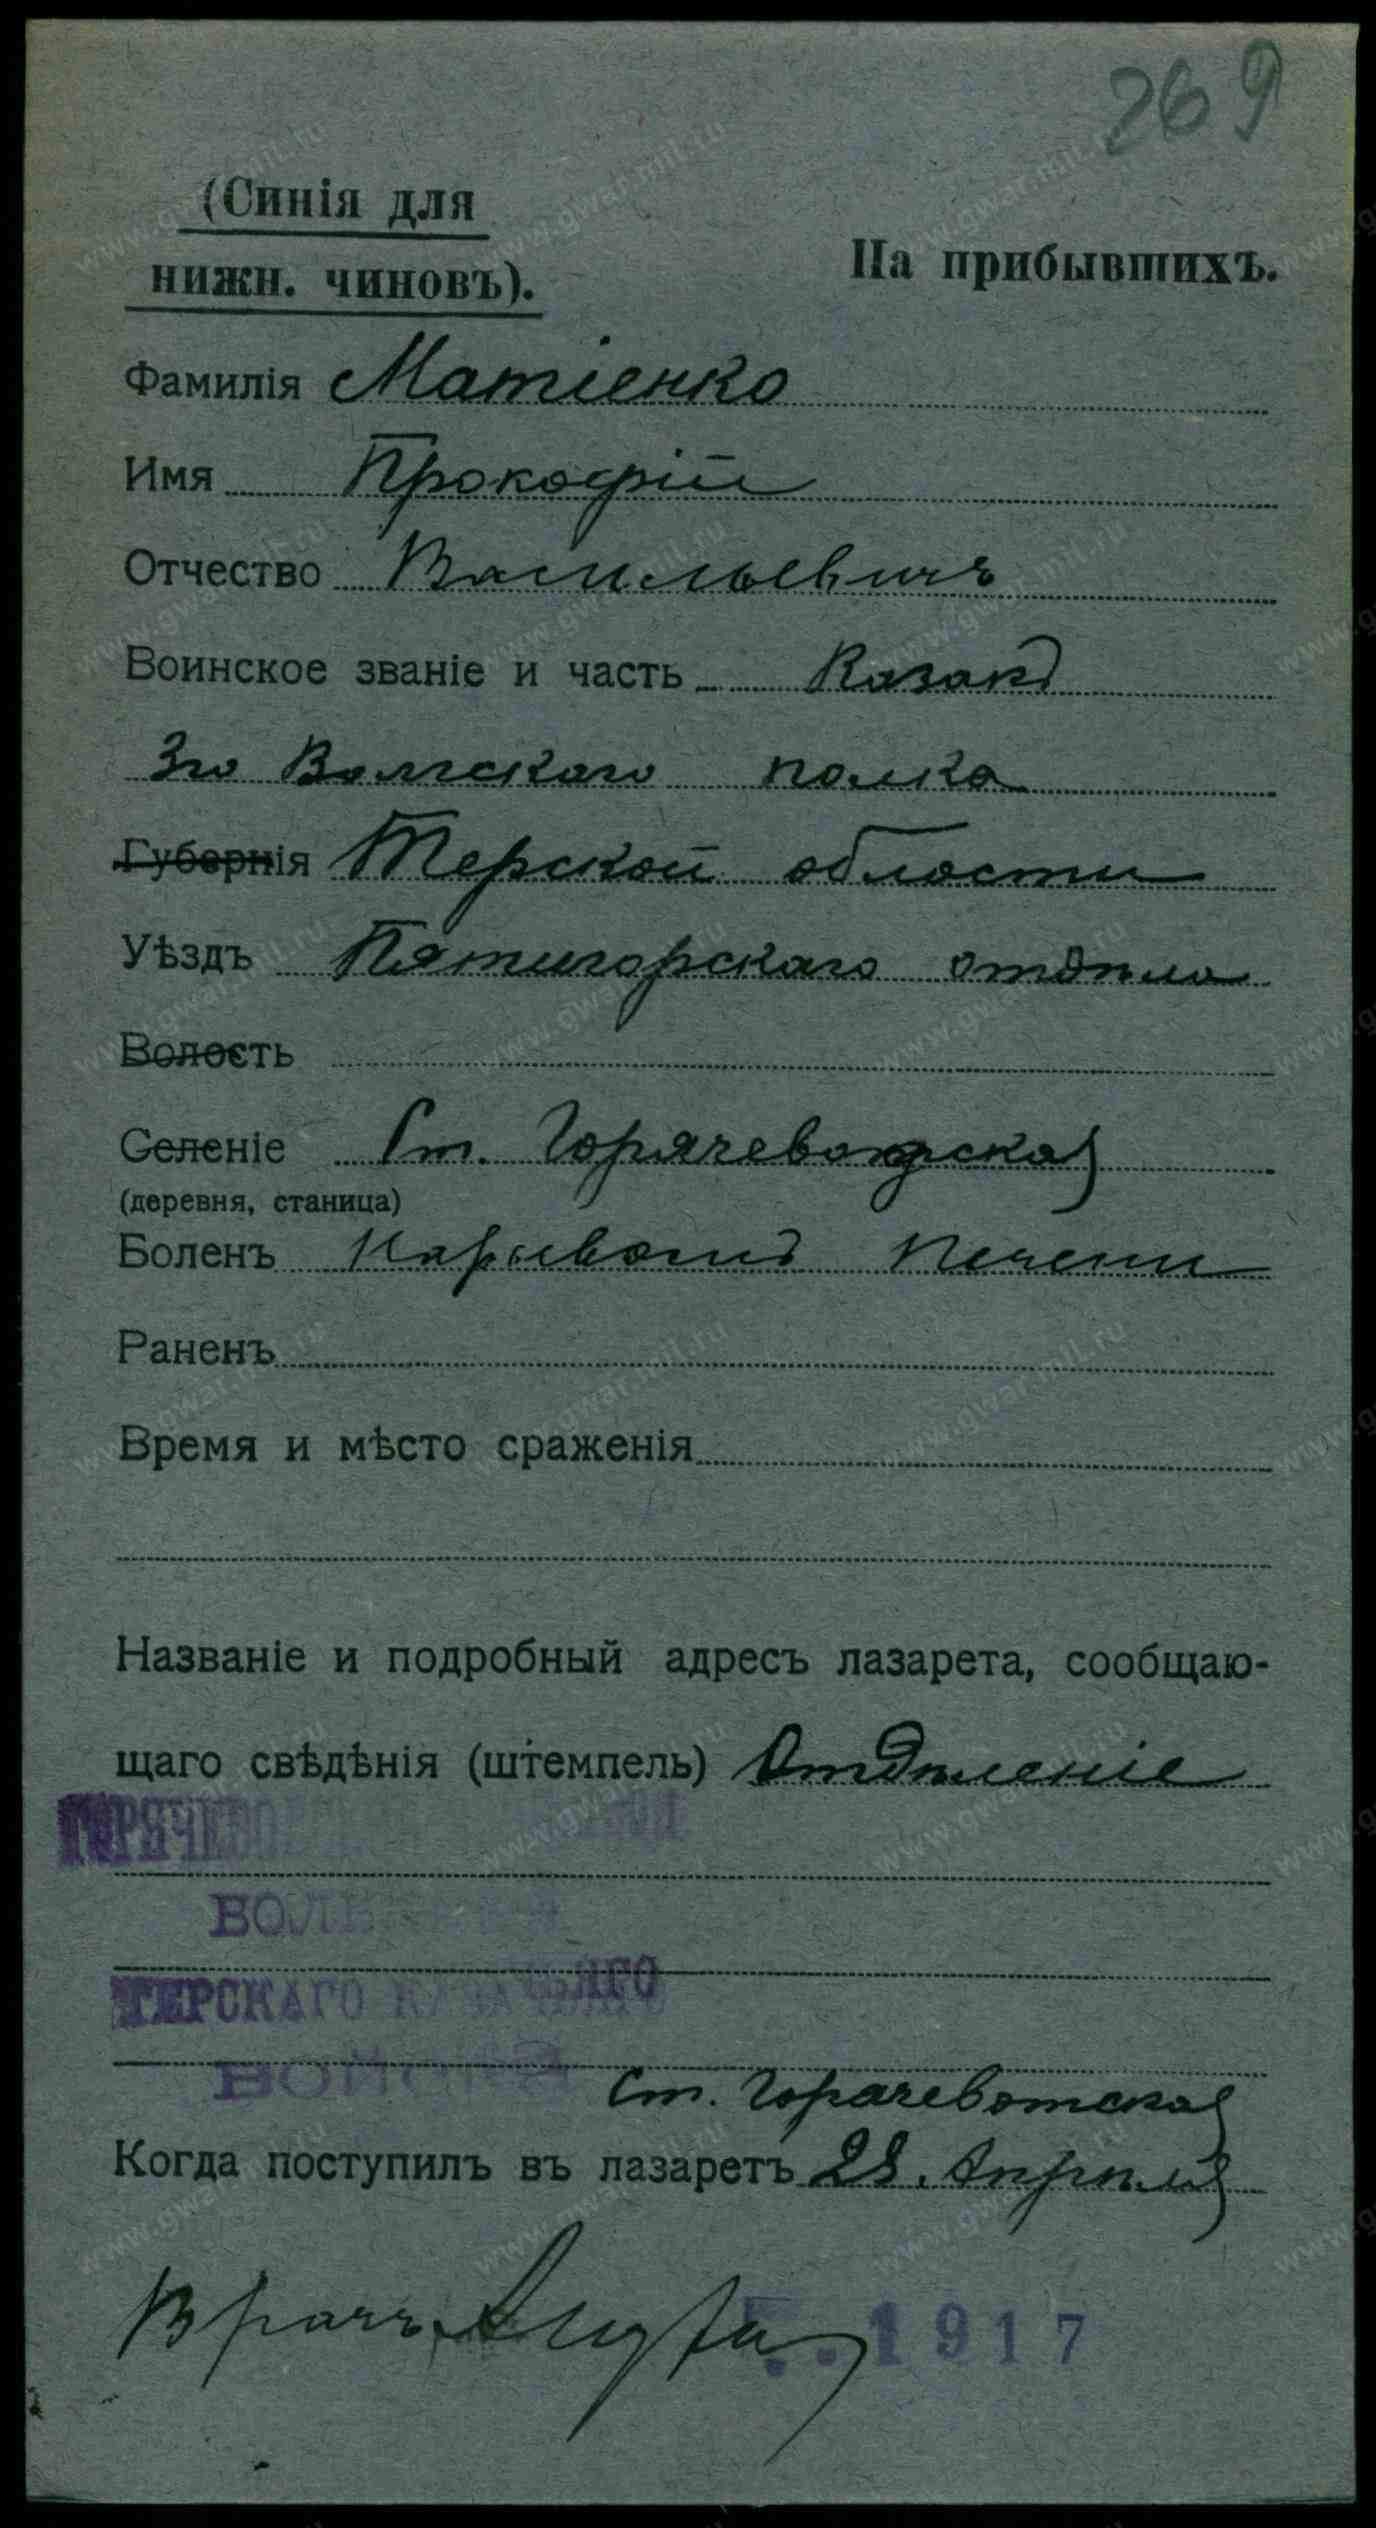 269
(Синія для
нижн. чиновъ).
На прибывшихъ.
Фамилія Матіенко
Имя Прокофій
Отчество Васильевичъ
Воинское званіе и часть Казакъ
3го Волгскаго полка
Губернія Терской области
Уѣздъ Пятигорскаго отдѣла
Волость
Селеніе Ст. Горячеводская
(деревня, станица)
Боленъ Нарывомъ печени
Раненъ
Время и мѣсто сраженія
Названіе и подробный адресъ лазарета, сообщаю-
щаго свѣдѣнія (штемпель) Отдѣленіе
ТЕРСКАГО КАЗАЧЬЯГО
ВОЙСКА
Ст. Горячевотская
Когда поступилъ въ лазаретъ 28. Апрѣля
Врачъ
1917
www.gwar.mil.ru